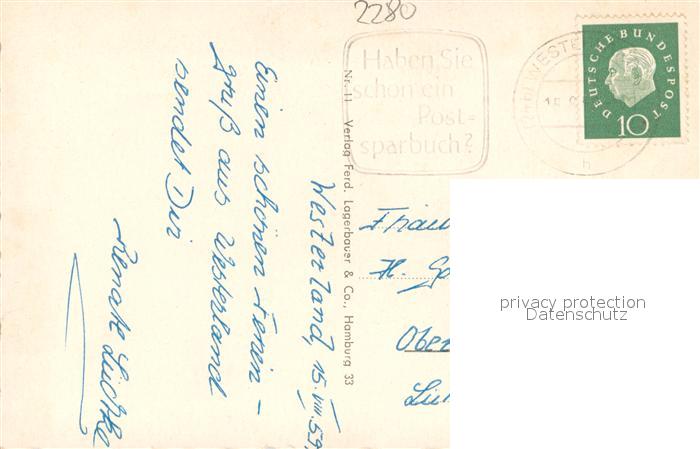 2280
Haben Sie
schon ein
Post-
sparbuch?
WESTE
15.
h
DEUTSCHE BUNDESPOST
10
Nr. 11 Verlag Ferd. Lagerbauer & Co., Hamburg 33
Westerland, 15.VIII.59.
Einen schönen Ferien-
gruß aus Westerland
sendet Dir
Renate Lüdtke
Frau
H. 
Ober
privacy protection
Datenschutz